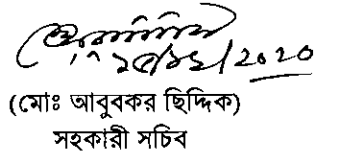 ২৫/১১/2020
(মোঃ আবুবকর ছিদ্দিক)
সহকারী সচিব